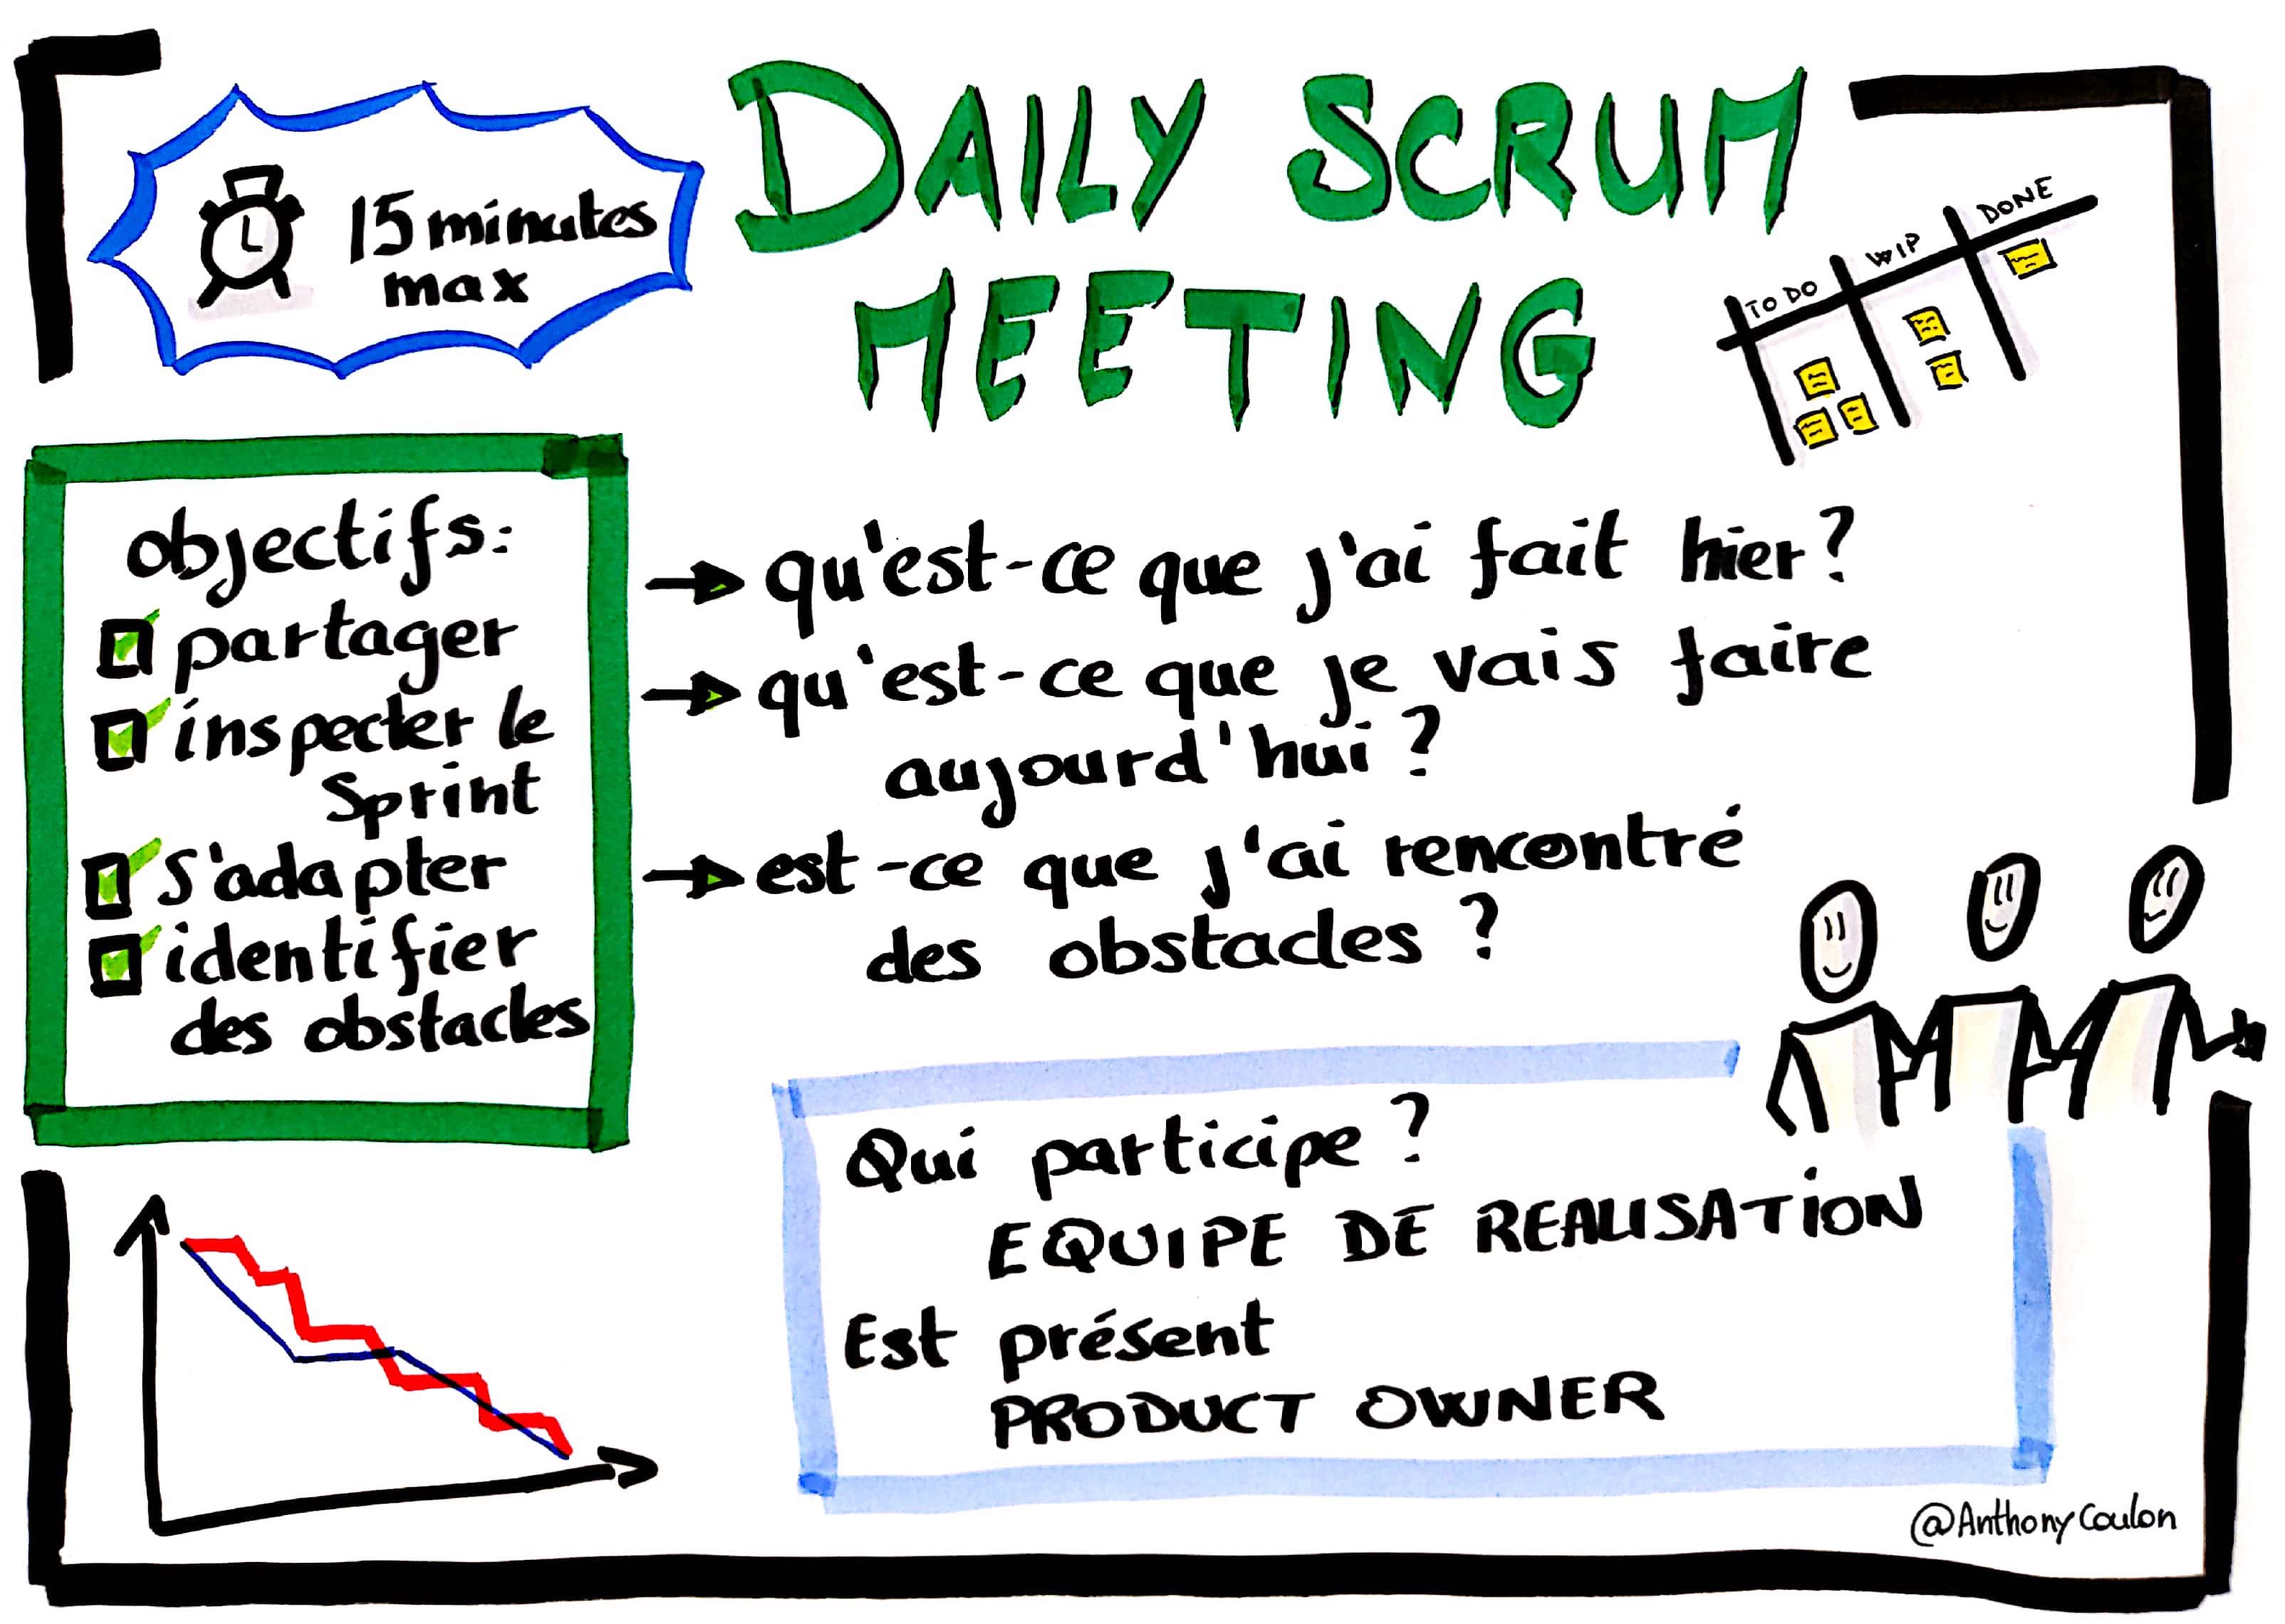 DAILY SCRUM
MEETING
15 minutes
max
TO DO
WIP
DONE
objectifs:
partager
inspecter le
Sprint
S'adapter
identifier
des obstacles
qu'est-ce que j'ai fait hier?
qu'est-ce que je vais faire
aujourd'hui ?
est-ce que j'ai rencontré
des obstacles ?
Qui participe ?
EQUIPE DE REALISATION
Est présent
PRODUCT OWNER
@AnthonyCoulon